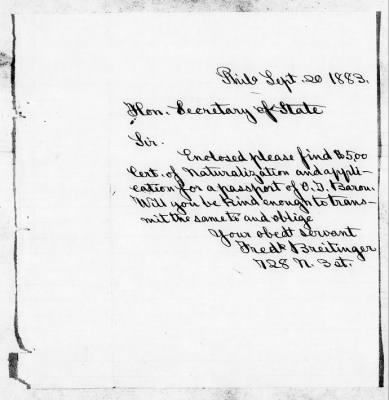 Phila Sept. 20 1883.
Hon. Secretary of State
Sir.
Enclosed please find $5,00
Cert. of Naturalization and appli-
cation for a passport of O. T. Baron.
Will you be kind enough to trans-
mit the same to and oblige
Your obedt servant
Fredk Breitinger
728 N. 3 st.